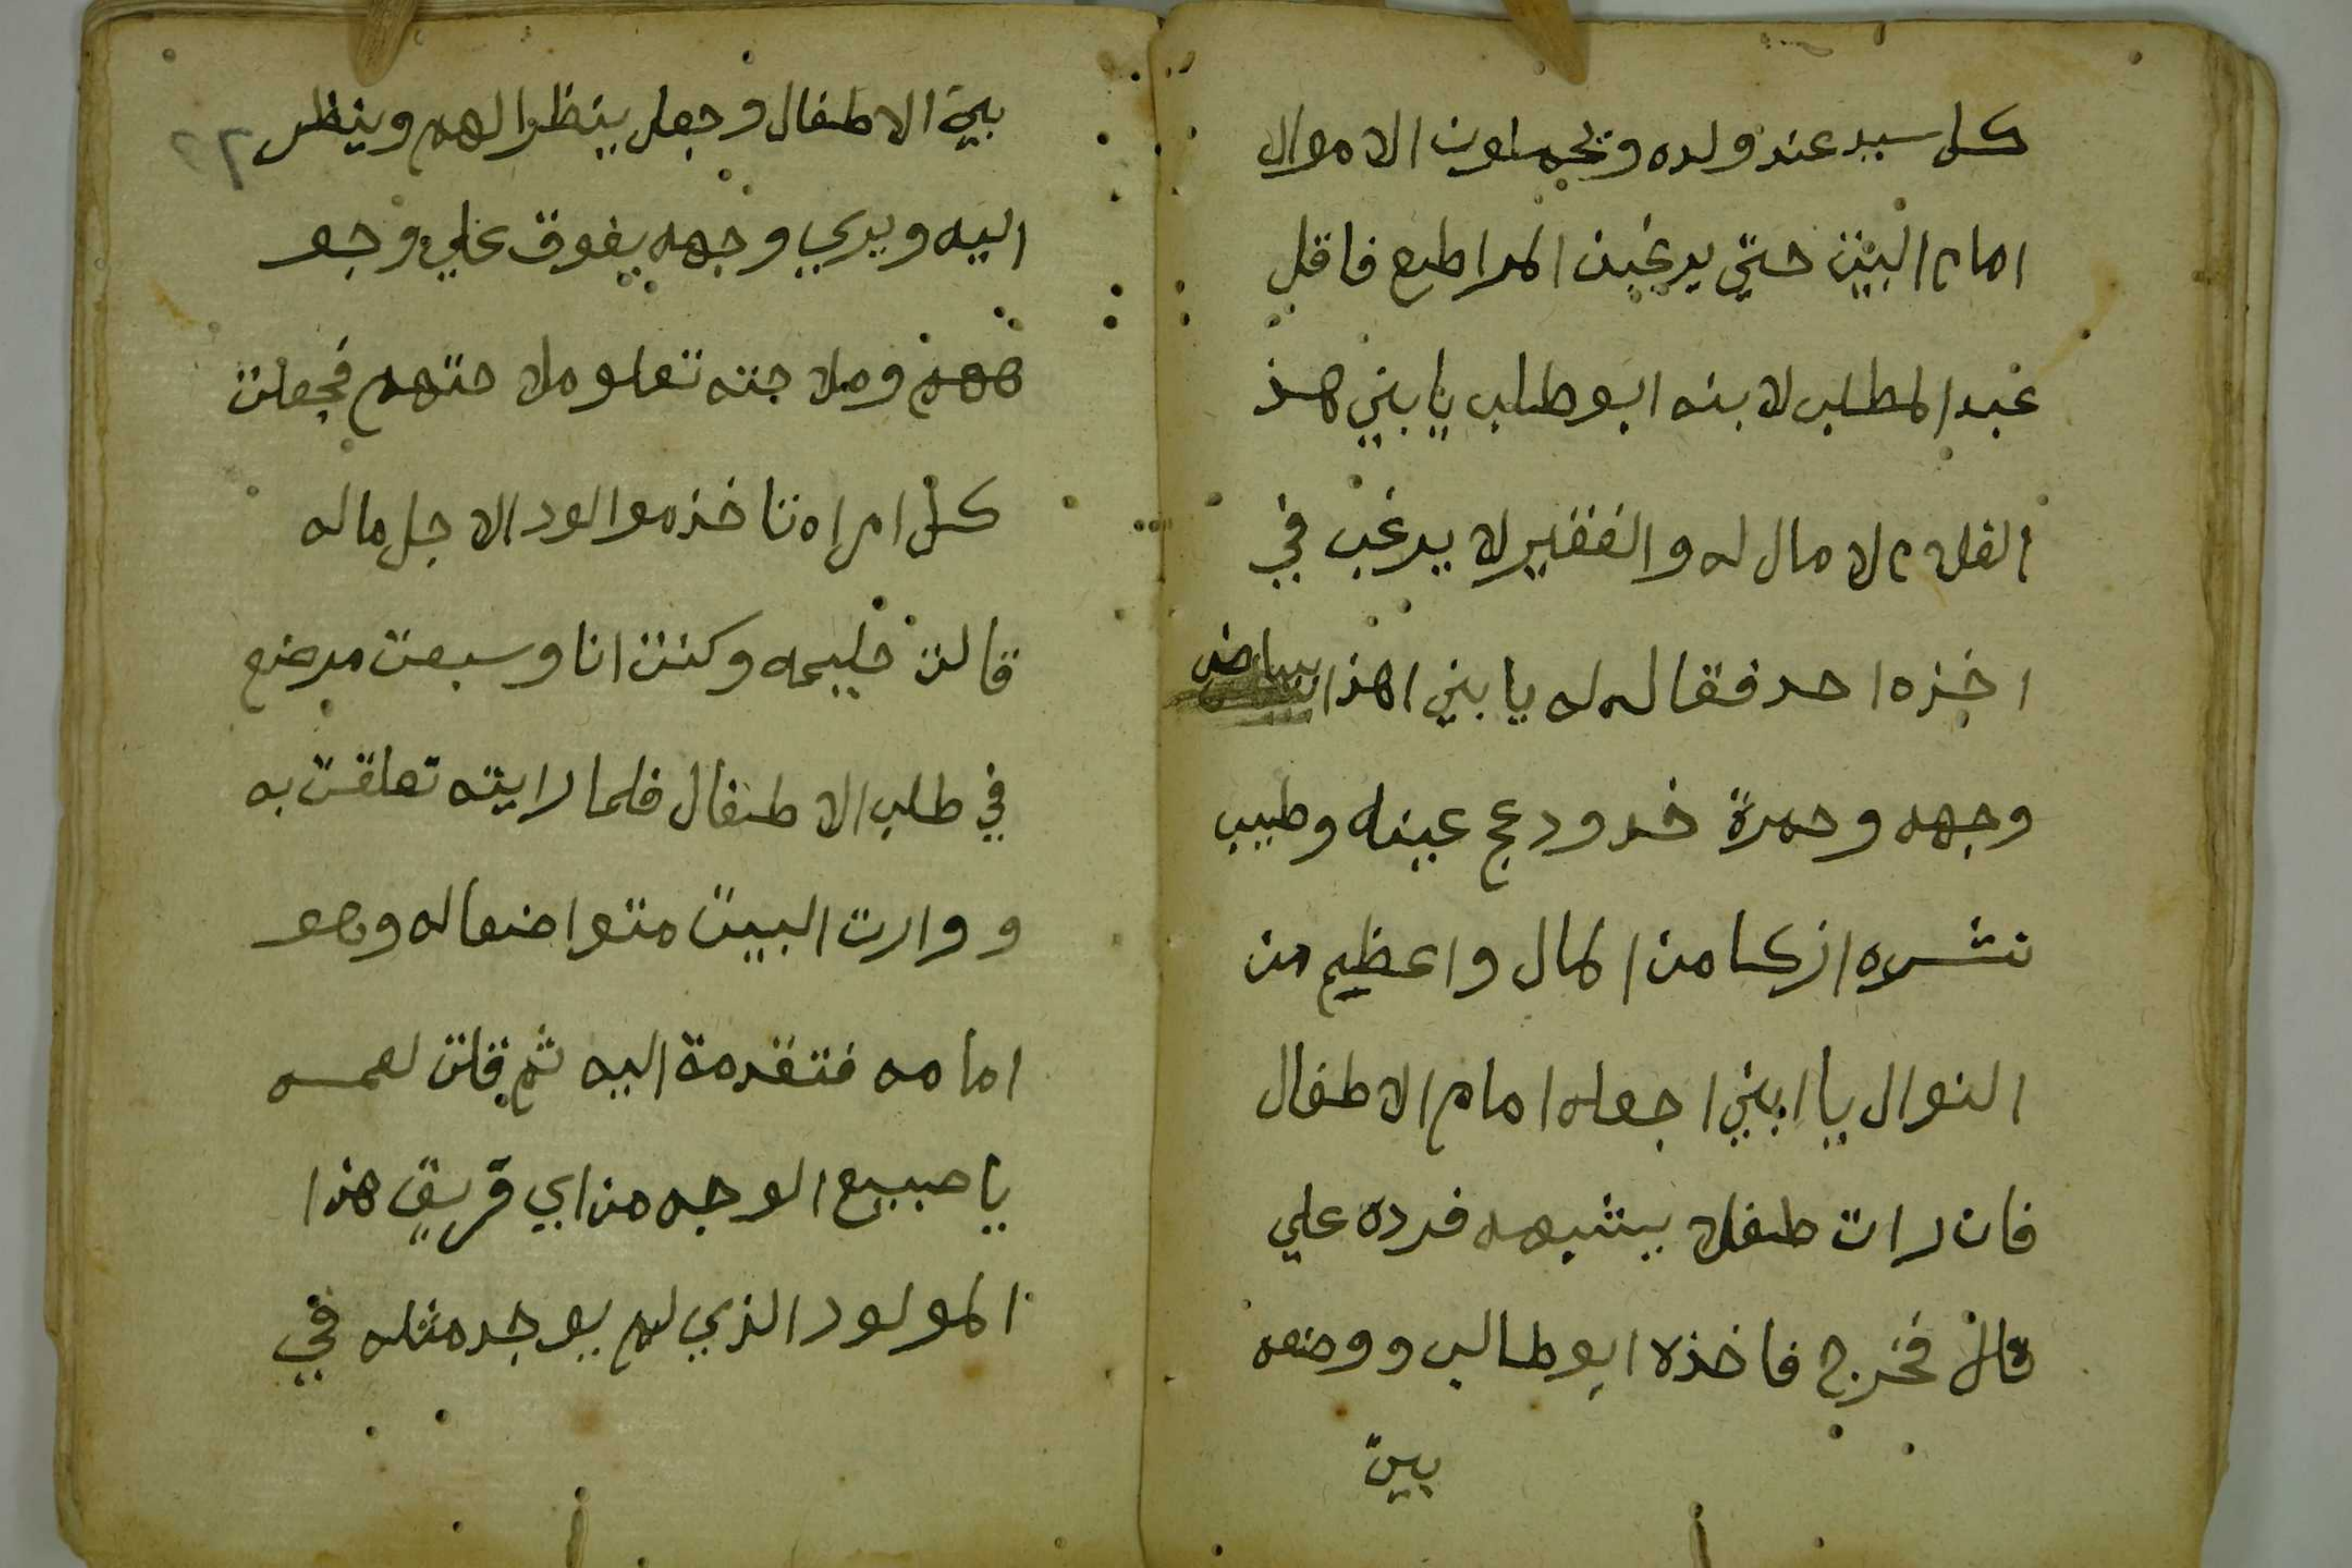 كل سيد عند ولده ويحملون الاموال
امام البيت حتي يرغبن المراطع فاقل
عبد المطلب لابنه ابو طلب يا بني هذ
الغلام لا مال له والفقير لا يرغب في
اخذه احد فقال له يا بني اهذا بياض
وجهه وحمرة خد ودعج عينه وطيب
نشره ازكا من المال واعظيم من
النوال يا ابني اجعله امام الاطفال
فان رات طفلا يشبهه فرده علي
قال فخرج فاخذه ابو طالب ووضعه
بين
بين الاطفال وجعل ينظر الهم وينظر
اليه ويري وجهه يفوق علي وجو
ههم وملاحته تعلو ملاحتهم فجعلت
كل امراه تاخذ موالود الاجل ماله
قالت حليمه وكنت انا وسبعت مرضع
في طلب الاطفال فلما رايته تعلقت به
و وارت البيت متواضعا له وهو
امامه فتقدمة اليه ثم قلت لعمه
يا صبيح الوجه من اي قريق هذا
المولود الذي لم يوجد مثله في